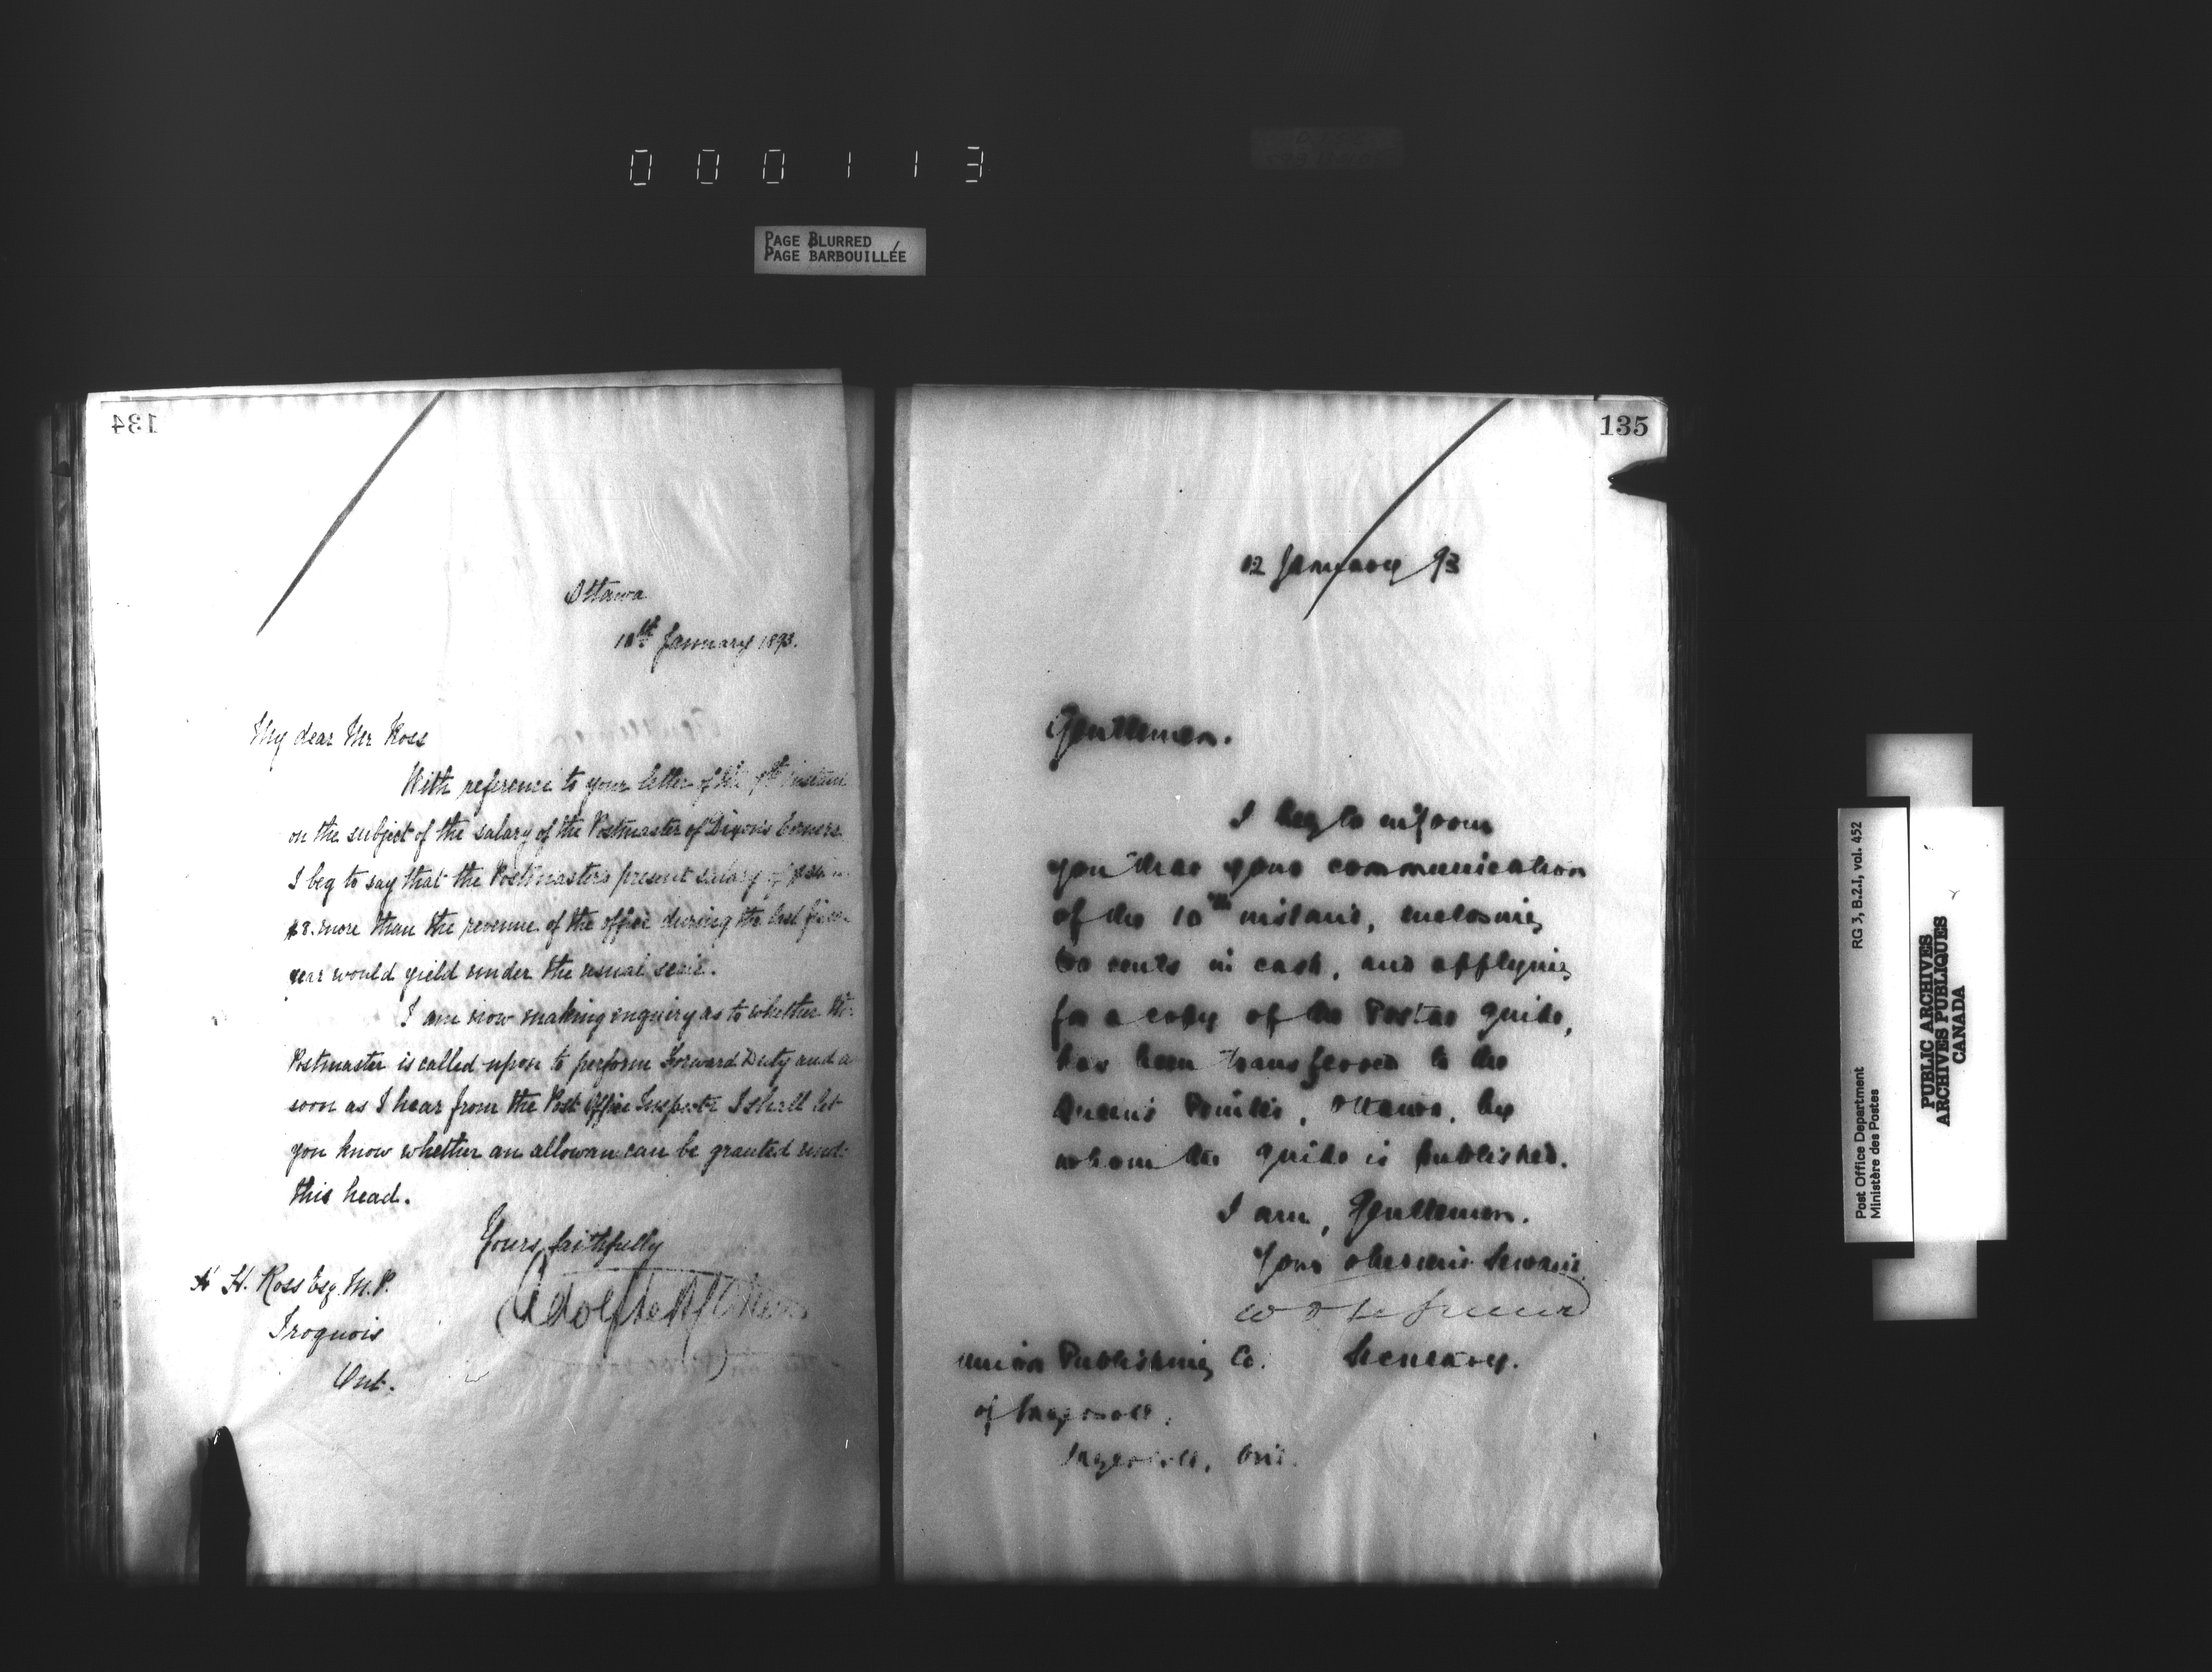 000113
PAGE BLURRED
PAGE BARBOUILLÉE
134
Ottawa
10th January 1893.
My dear Mr Ross
With reference to your letter of the instant
on the subject of the salary of the Postmaster of Dixon's Corners
I beg to say that the Postmasters present salary
$8. more than the revenue of the office during the last
year would yield under the usual scale.
I am now making inquiry as to whether the
Postmaster is called upon to perform Forward Duty and a
soon as I hear from the Post Office Inspector I shall let
you know whether an allowan can be granted und
this head.
Yours faithfully
H. Ross Esq. M.P.
Iroquois
Ont.
135
12 January 93
Gentlemen.
I beg to inform
you that your communication
of the 10th instant, enclosing
cents in cash, and applying
for a copy of the Postal Guide,
has been transferred to the
Queen's Printer, Ottawa, by
whom the guide is published.
I am, Gentlemen.
Your obedient Servant
Secretary.
Union Publishing Co.
of Ingersoll,
Ingersoll, Ont.
Post Office Department
Ministère des Postes
RG 3, B.2.1, vol. 452
PUBLIC ARCHIVES
ARCHIVES PUBLIQUES
CANADA